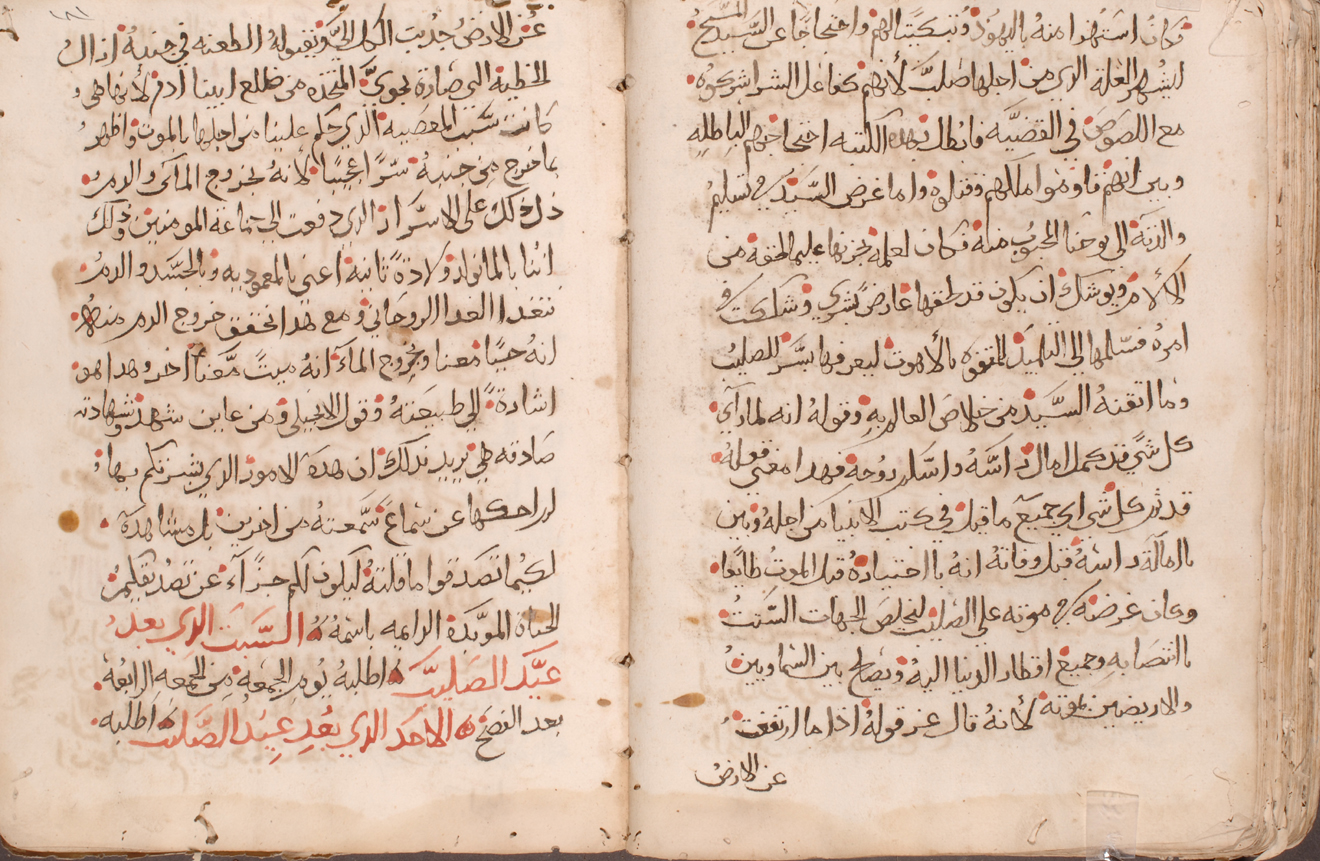 فكان اشتهزا منه باليهود وتبكيتا لهم واحتجاجا عن السيد المسيح
ليشهر العله الدي من اجلها صلب لأنهم كفاعل الشر اشركوه
مع اللصوص في القضيه فابطل بهده الكتبه احتجاجهم الباطله
وبين انهم قاوموا ملكهم وقتلوه واما غرض السيد في تسليم
والدته الى يوحنا المحبوب منه فكان لعلمه بحزنها عليه لما لحقه من
الالام ويوشك ان يكون قد لحقها عارض بشري وشكت في
امره فسلمها الى التلميد المتفوه بالاهوت ليعرفها بسر الصليب
وما اتقنه السيد من خلاص العالم به وقوله انه لما راي
كل شي قد كمل امال راسه واسلم روحه فهدا معنى قوله
قد تم كل شي اي جميع ما قيل في كتب الانبيا من اجله وبين
باامالة راسه قبل وفاته انه باختياره قبل الموت طايعا
وكان غرضه في موته على الصليب ليخلص الجهات الستت
بانتصابه وجميع اقطار الدنيا اليه ويصلح بين السما وبين
والارضيين بموته لأنه قال عز قوله اذا ما ارتفعت
عن الارض
عن الارض جدبت الكل الي وبقبوله الطعنه في جنبه ازال
الخطية التي صارة بحوي المتخده من ضلع ابينا ادم لأنها هي
كانت سبب المعصيه الدي حكم علينا من اجلها بالموت واظهر
بما خرج من جنبه سرا عجيبا لانه بخروج الما والدم
دل دلك على الاسرار الدي دفعت الي جماعة المومنين ودلك
اننا بالما نولد ولادة تانية اعني بالمعموديه وبالجسد والدم
نتغدا الغدا الروحاني ومع هدا تحقق خروج الدم منه
انه حيا معنا وبخروج الماء انه ميت معنا اخر وهدا هو
اشارة الي طبيعته وقول الانجيلي ومن عاين شهد وشهادته
صادقه هي يريد بدلك ان هده الامور الدي بشرتكم بها
لم احكها عن سماع سمعته من اخرين بل مشاهدة
لكيما تصدقوا ما قلته ليكون لكم جزآء عن تصديقكم
الحياه الموبدة الدايمه باسمه السبت الدي بعد
عيد الصليب اطلبه يوم الجمعه من الجمعه الرابعه
بعد الفصح الاحد الدي بعد عيد الصليب اطلبه